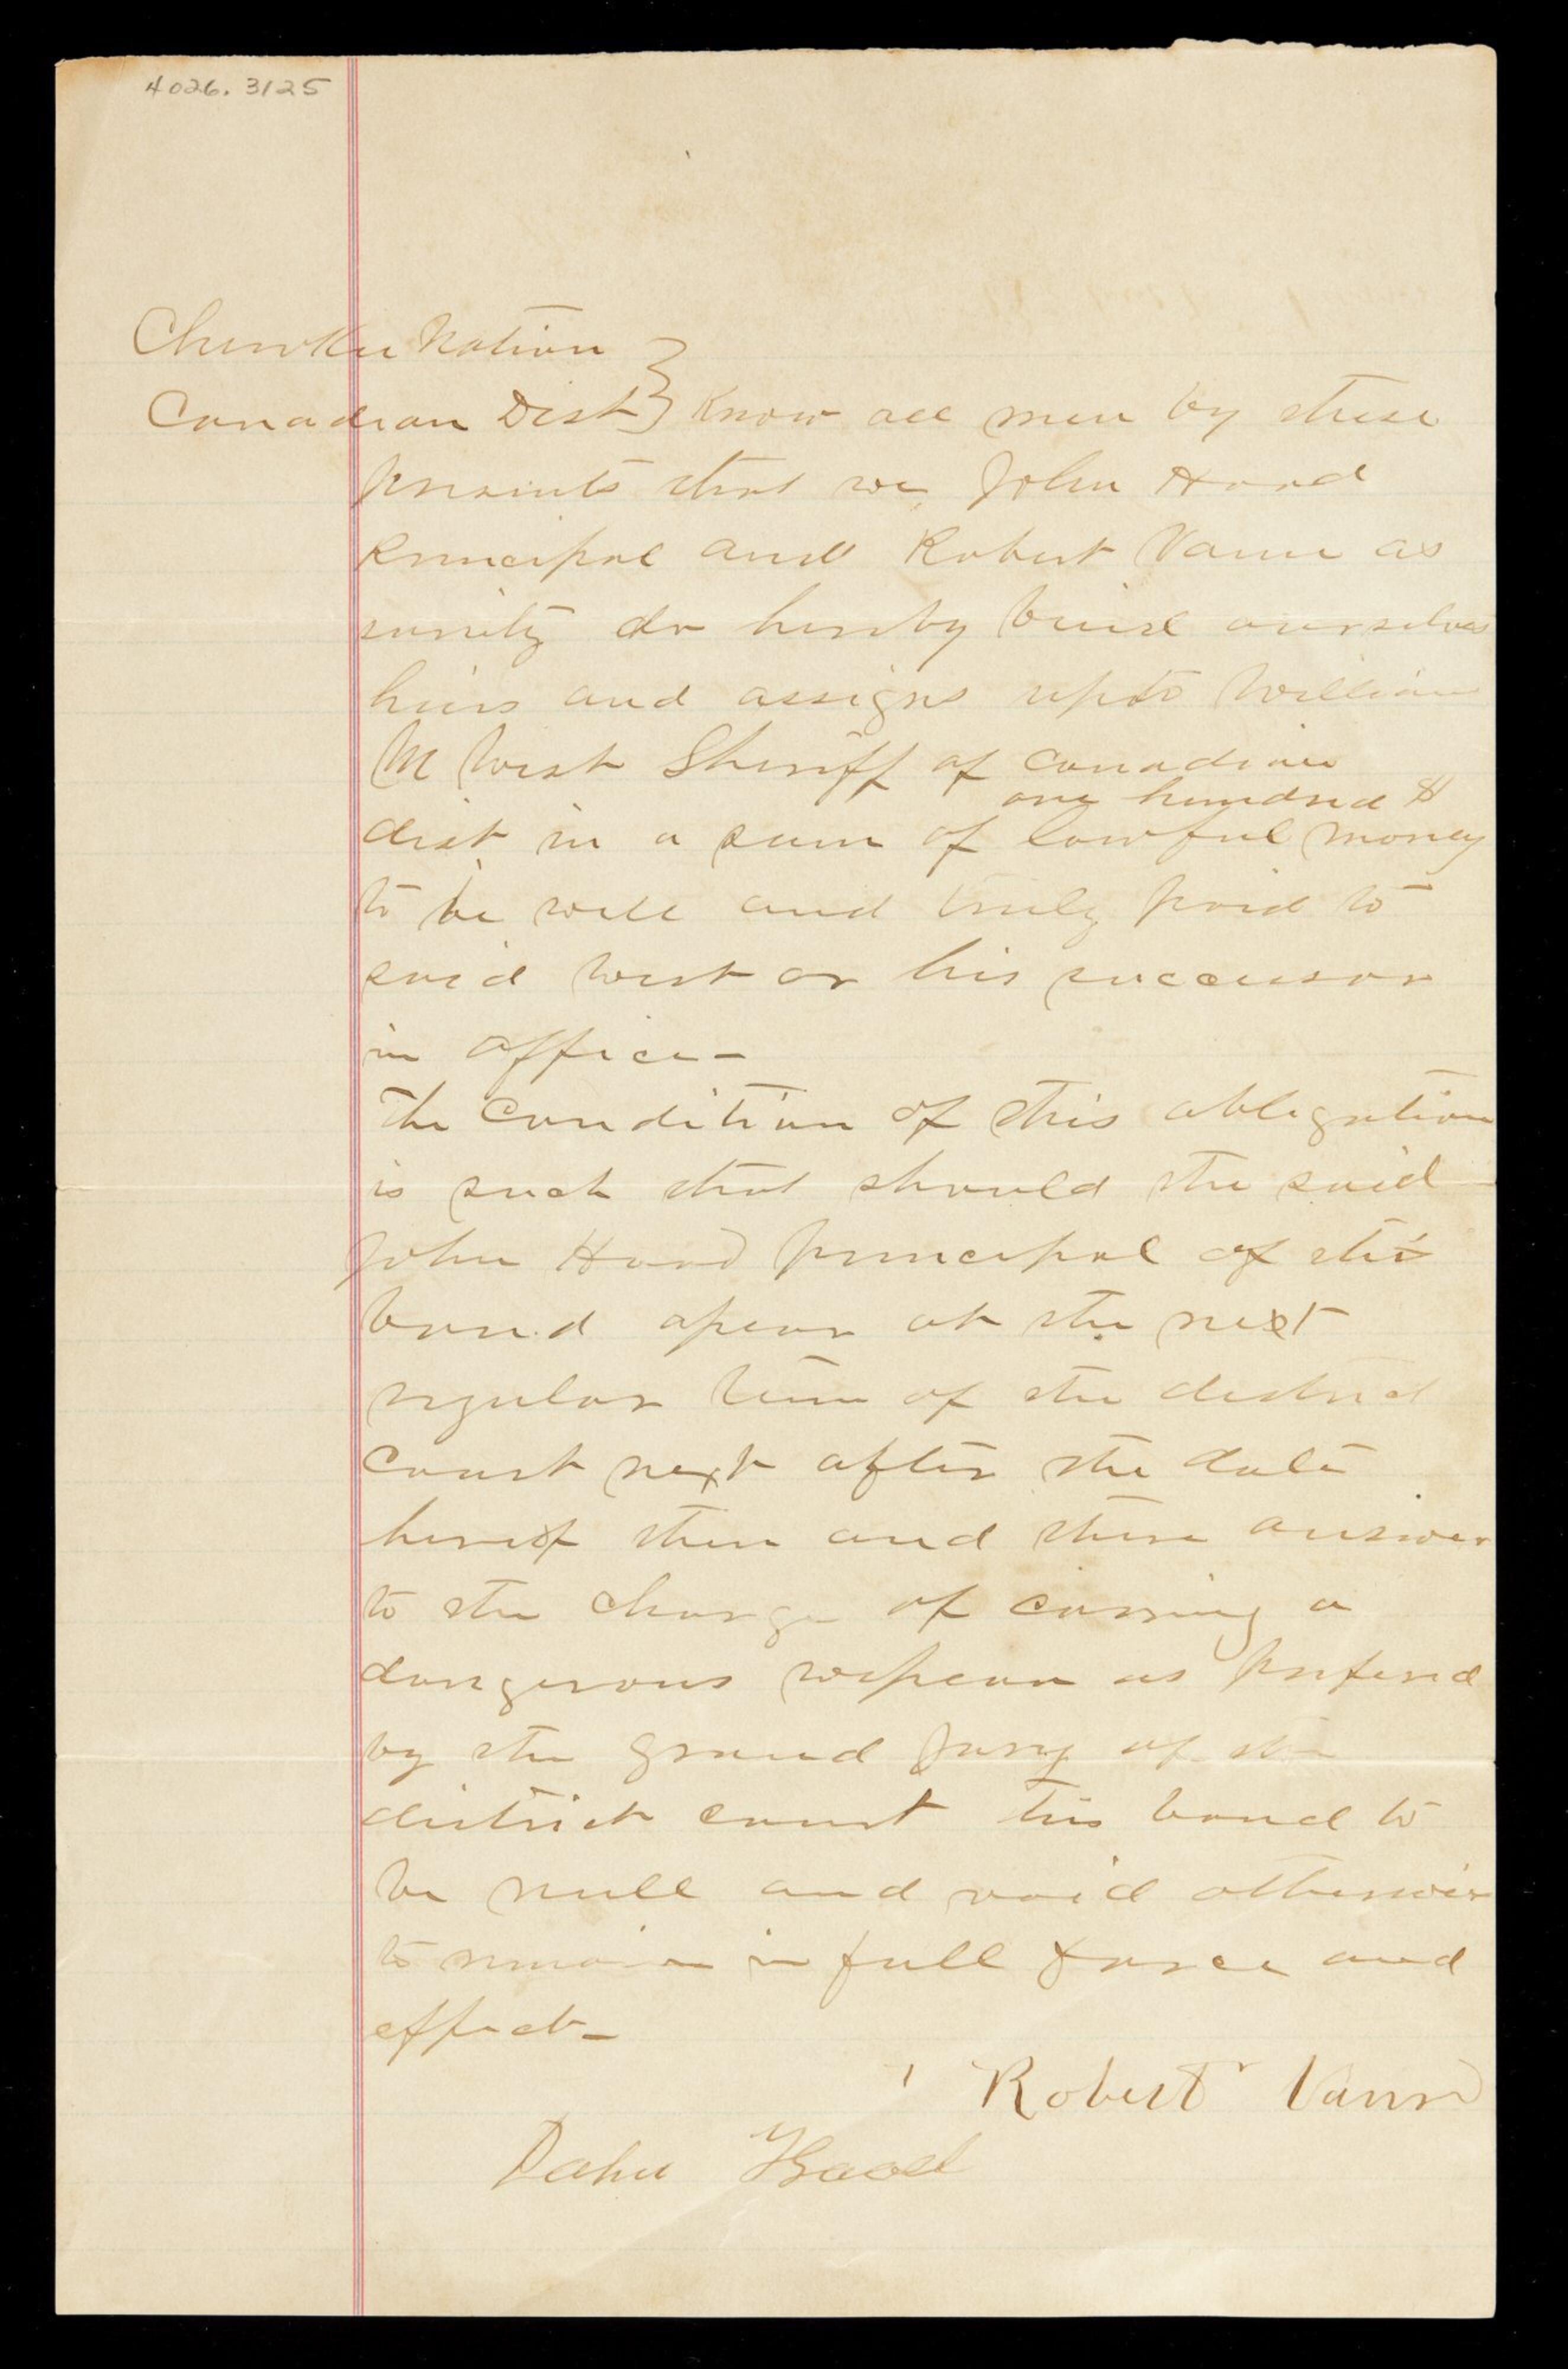 4026.3125
Cherokee Nation }
Canadian Dist } Know all men by these
presints that we, John Hood
Principal and Robert Vann as
surity do hereby bind ourselves
heirs and assigns upto William
M West Sheriff of Canadian
one hundred $
dist in a sum of lawful money
to be well and truly paid to
said West or his successor
in office -
The Condition of this obligation
is such that should the said
John Hood principal of this
bond apear at the next
regular term of the district
Court next after the date
hereof then and there answer
to the charge of carring a
dangerous wepean as prefered
by the grand jury of the
district court this bond to
be null and void otherwise
to remain in full force and
effect -
Robert Vann
John Hood